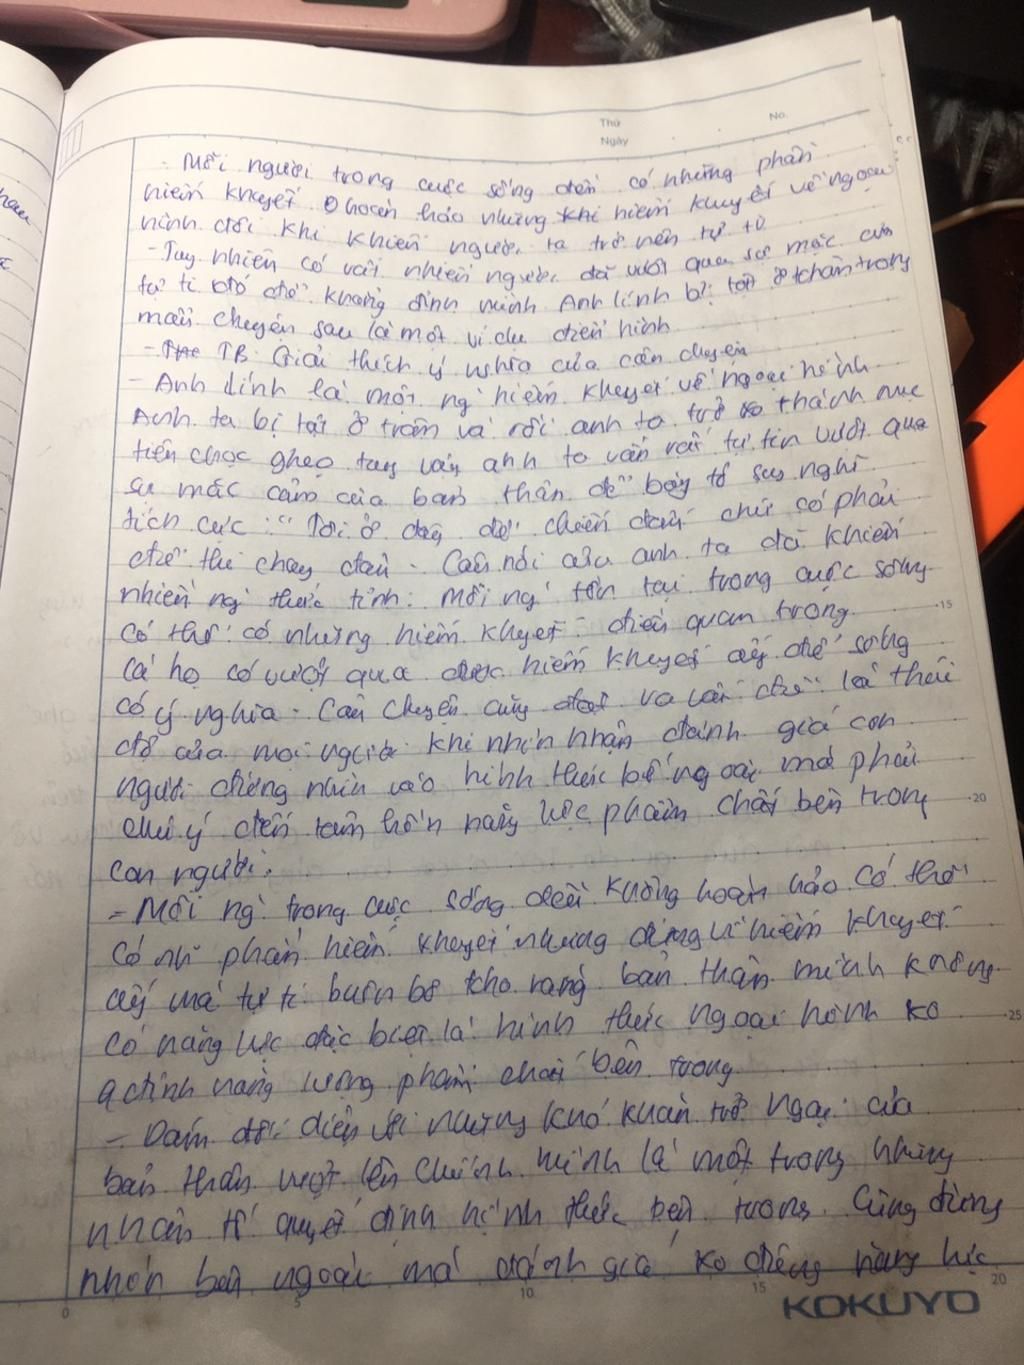 Thứ
No.
Ngày
- Mỗi người trong cuộc sống đều có những phần
hiếm khuyết hoàn hảo nhưng khi hiếm khuyết về ngoại
hình đôi khi khiến người ta trở nên tự ti
- Tuy nhiên có rất nhiều người đã vượt qua sự mặc cảm
tự ti đó để khẳng định mình Anh lính bị tật ở chân trong
mẩu chuyện sau là một ví dụ điển hình
- TB. Giải thích ý nghĩa của câu chuyện
- Anh lính là một ng' hiếm khuyết về ngoại hình
Anh ta bị tật ở chân và rồi anh ta trở thành mục
tiêu chọc ghẹo tuy vậy anh ta vẫn rất tự tin vượt qua
sự mặc cảm của bản thân để bày tỏ suy nghĩ
tích cực: "Tôi ở đây để chiến đấu chứ có phải
để thi chạy đâu. Câu nói của anh ta đã khiến
nhiều ng' thức tỉnh: Mỗi ng' tồn tại trong cuộc sống
có thể có những hiếm khuyết điều quan trọng
là họ có vượt qua được hiếm khuyết ấy để sống
có ý nghĩa. Câu chuyện cũng là thái
độ của mọi người khi nhìn nhận đánh giá con
người đừng nhìn vào hình thức bề ngoài mà phải
chú ý đến tâm hồn năng lực phẩm chất bên trong
con người.
- Mỗi ng' trong cuộc sống đều không hoàn hảo có thể
có nh~ phần hiếm khuyết nhưng đừng vì hiếm khuyết
ấy mà tự ti buồn bã cho rằng bản thân mình không
có năng lực đặc biệt là hình thức ngoại hình ko
định năng lượng phẩm chất bên trong
- Dám đối diện với những khó khăn trở ngại của
bản thân vượt lên chính mình là một trong những
nhân tố quyết định hình thức bên trong. Cũng đừng
nhìn bên ngoài mà đánh giá ko đúng năng lực
15
20
25
0
5
10
15
20
KOKUYO